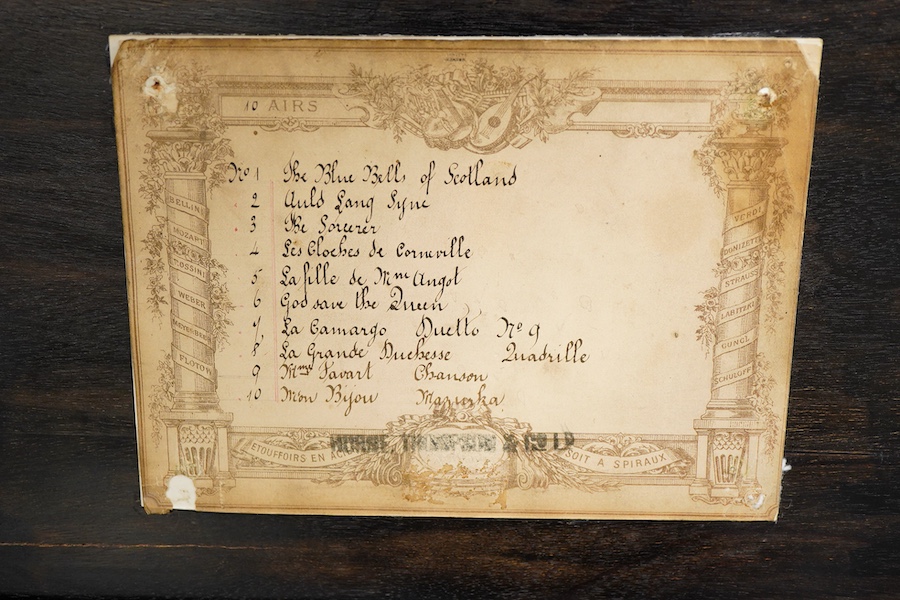 10 AIRS
No 1 The Blue Bells of Scotland
2 Auld Lang Syne
3 The Sorcerer
4 Les Cloches de Corneville
5 La fille de Mme Angot
6 God save the Queen
7 La Camargo Duetto No 9
8 La Grande Duchesse Quadrille
9 Mme Favart Chanson
10 Mon Bijou Mazurka
BELLINI
MOZART
ROSSINI
WEBER
MEYERBEER
FLOTOW
VERDI
DONIZETTI
STRAUSS
LABITZKI
GUNGL
SCHULOFF
ETOUFFOIRS EN
SOIT A SPIRAUX
& CO LD